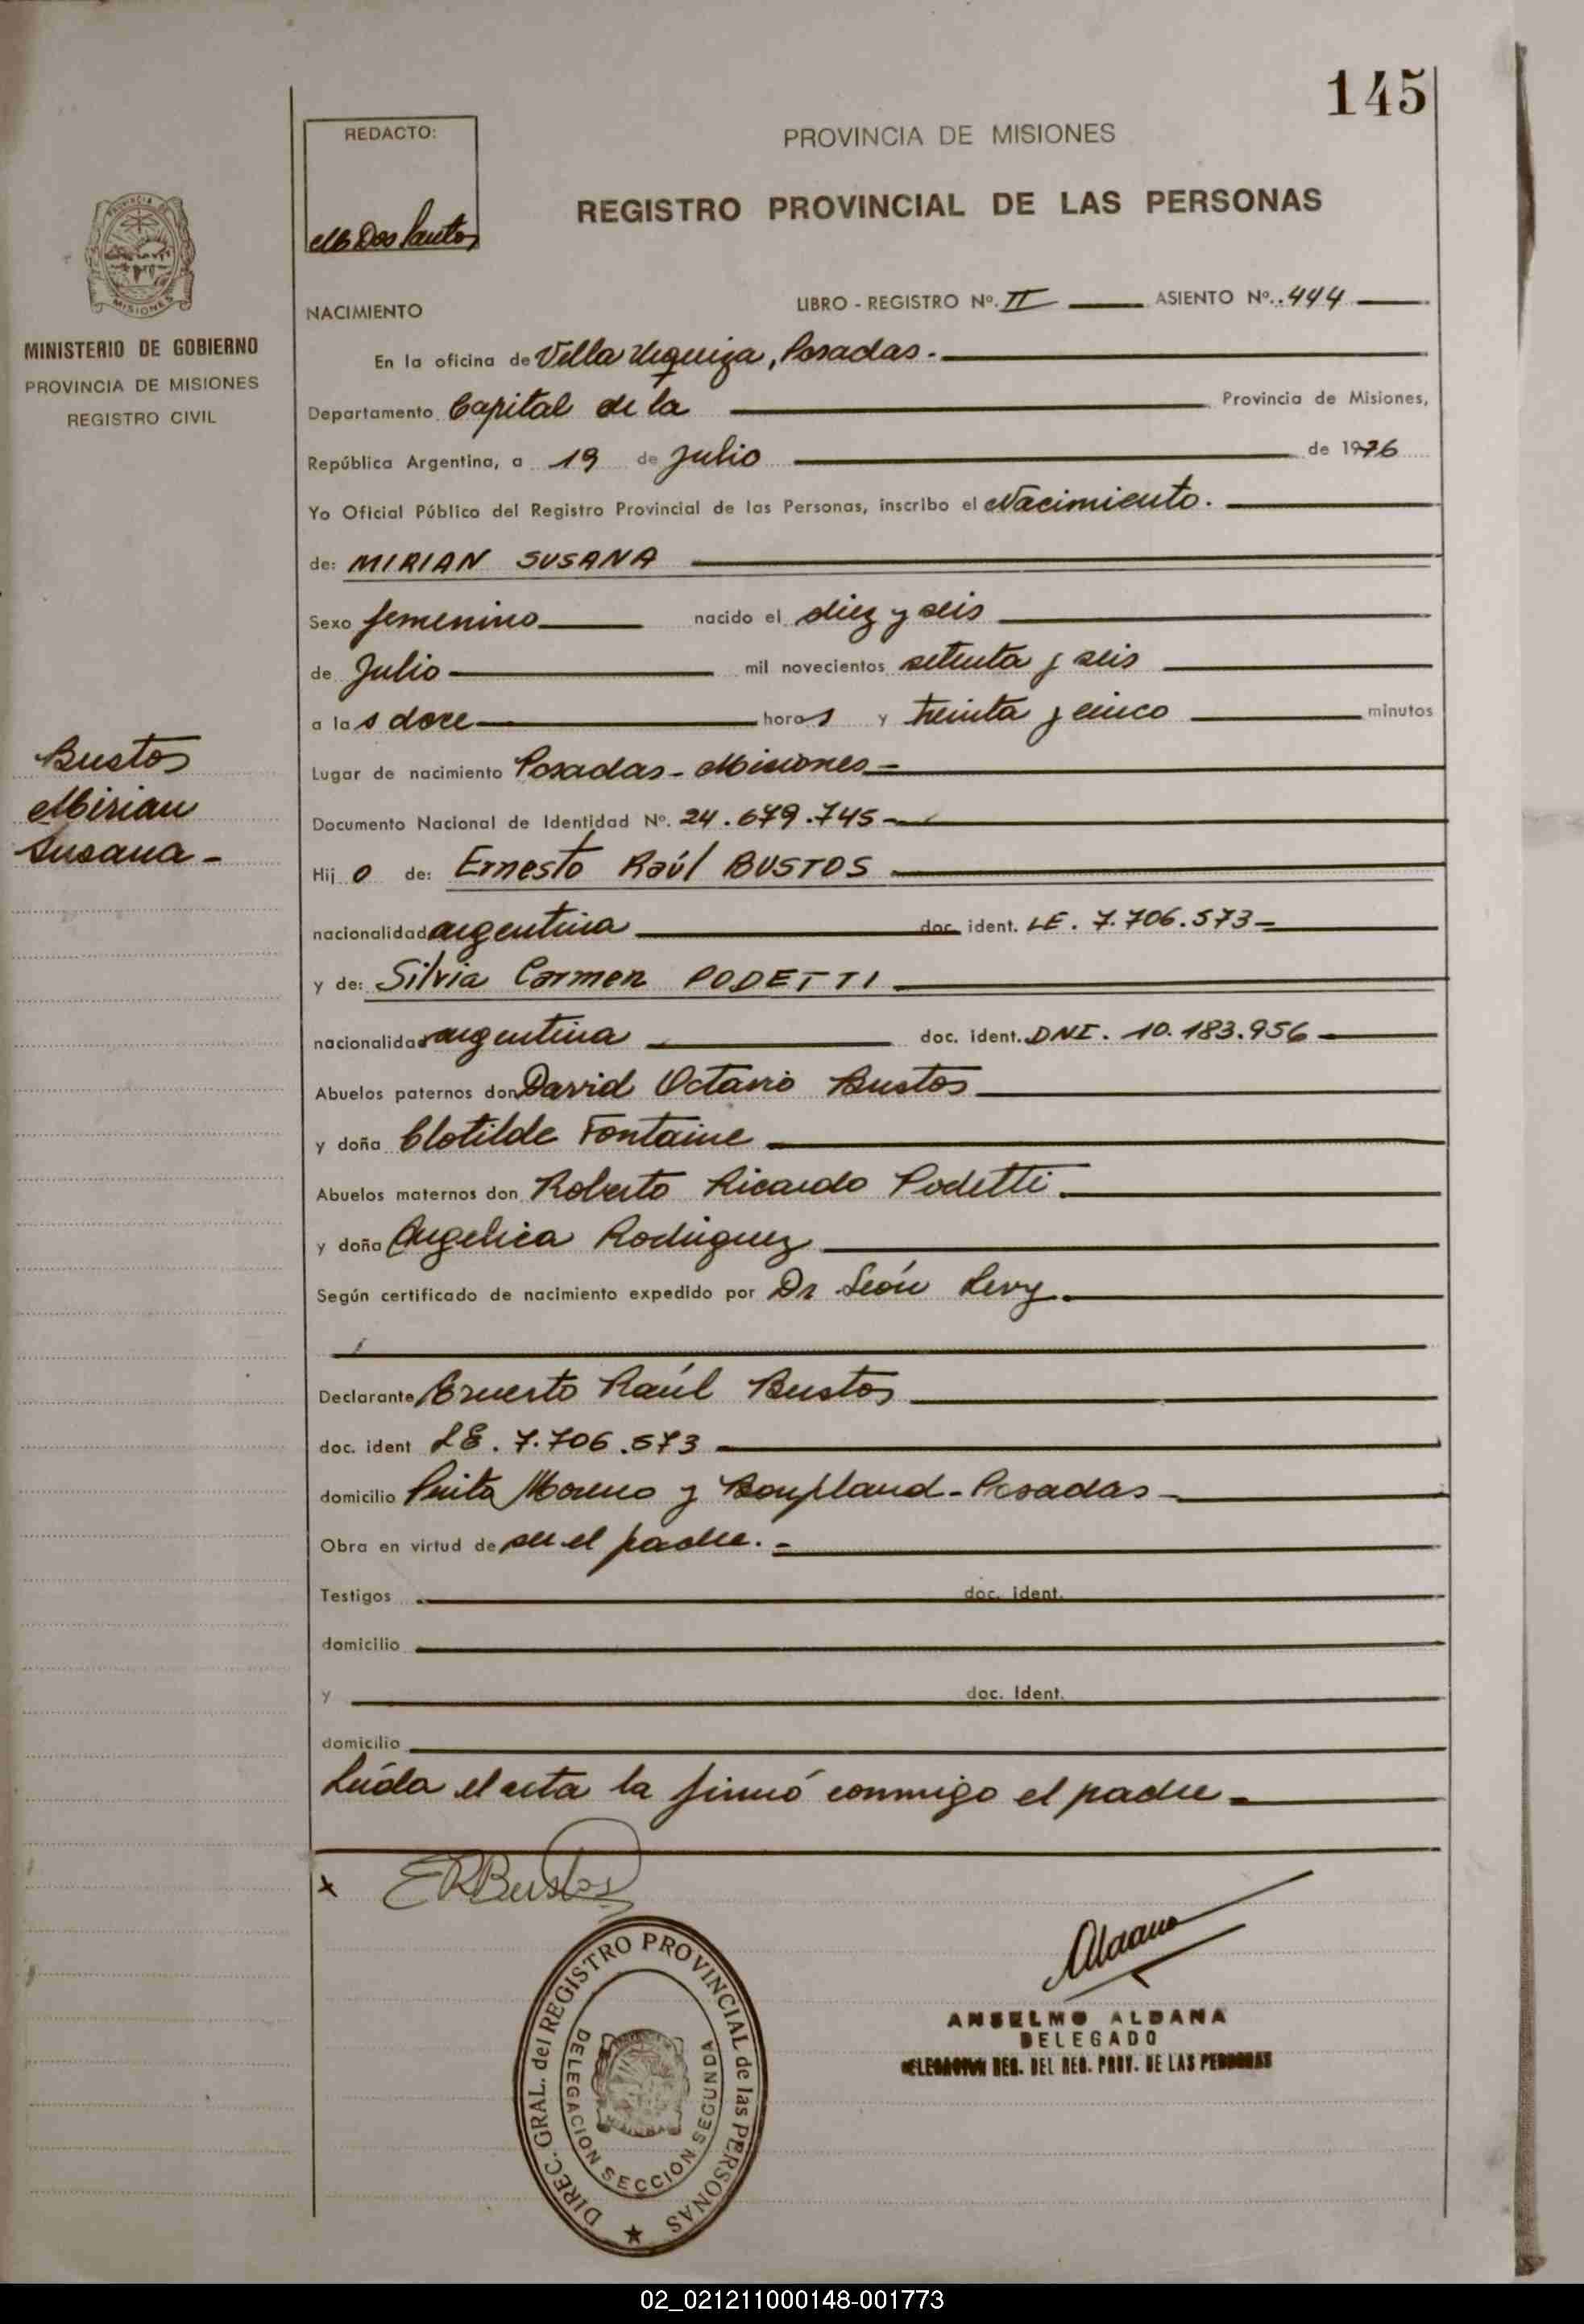 145
REDACTO:
MB Dos Santos
PROVINCIA DE MISIONES
REGISTRO PROVINCIAL DE LAS PERSONAS
PROVINCIA DE
MISIONES
MINISTERIO DE GOBIERNO
PROVINCIA DE MISIONES
REGISTRO CIVIL
Bustos
Mirian
Susana -
NACIMIENTO LIBRO - REGISTRO Nº. II ASIENTO Nº. 444
En la oficina de Villa Urquiza, Posadas.
Departamento Capital de la Provincia de Misiones,
República Argentina, a 19 de Julio de 1976
Yo Oficial Público del Registro Provincial de las Personas, inscribo el Nacimiento.
de: MIRIAN SUSANA
Sexo femenino nacido el diez y seis
de Julio mil novecientos setenta y seis
a las doce horas y treinta y cinco minutos
Lugar de nacimiento Posadas - Misiones -
Documento Nacional de Identidad Nº. 24.679.745 -
Hijo de: Ernesto Raúl BUSTOS
nacionalidad argentina doc. ident. LE. 7.706.573 -
y de: Silvia Carmen PODETTI
nacionalidad argentina doc. ident. DNI. 10.183.956
Abuelos paternos don David Octavio Bustos
y doña Clotilde Fontaine
Abuelos maternos don Roberto Ricardo Podetti
y doña Angelica Rodriguez
Según certificado de nacimiento expedido por Dr León Levy.
Declarante Ernesto Raúl Bustos
doc. ident LE. 7.706.573
domicilio Perito Moreno y Bonpland - Posadas -
Obra en virtud de ser el padre. -
Testigos doc. ident.
domicilio
y doc. Ident.
domicilio
Leída el acta la firmó conmigo el padre -
x ERBustos
Aldana
ANSELMO ALDANA
DELEGADO
DELEGACION REG. DEL REG. PROV. DE LAS PERSONAS
DIREC. GRAL. del REGISTRO PROVINCIAL de las PERSONAS
DELEGACION SECCION SEGUNDA
02_021211000148-001773